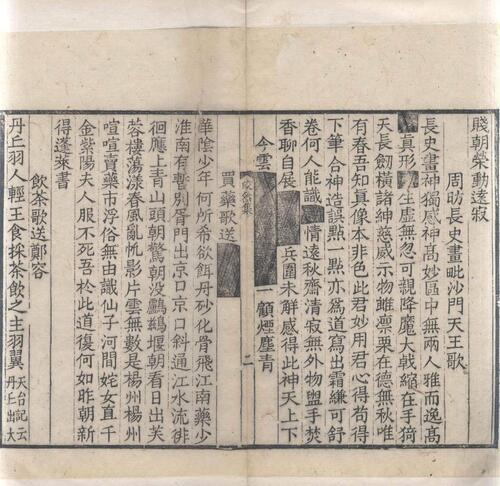 賤朝榮動逺寂
周昉長史畫毗沙門天王歌
長史畫神獨感神高妙區中無兩人雅而逸高
真形生虛無忽可親降魔大戟縮在手猗
天長劒橫諸紳慈威示物雖凛栗在德無秋唯
有春吾知真像本非色此君妙用君心得苟得
下筆合神造誤㸃一㸃亦爲道寫出霜縑可舒
卷何人能識情逺秋齋清寂無外物盥手焚
香聊自展兵圍未解感得此神天上下
今雲一顧煙塵青
二
買藥歌送
華陰少年何所希欲餌丹砂化骨飛江南藥少
淮南有暫別胥門出京口京口斜通江水流徘
徊應上青山頭朝驚朝没鸕鷀堰朝看日出芙
蓉樓蕩漾春風亂帆影片雲無數是楊州楊州
喧喧賣藥市浮俗無由識仙子河間姹女直千
金紫陽夫人服不死吾於此道復何如昨朝新
得蓬萊書
飲茶歌送鄭容
丹丘羽人輕玉食採茶飲之主羽翼天台記云
丹丘出大